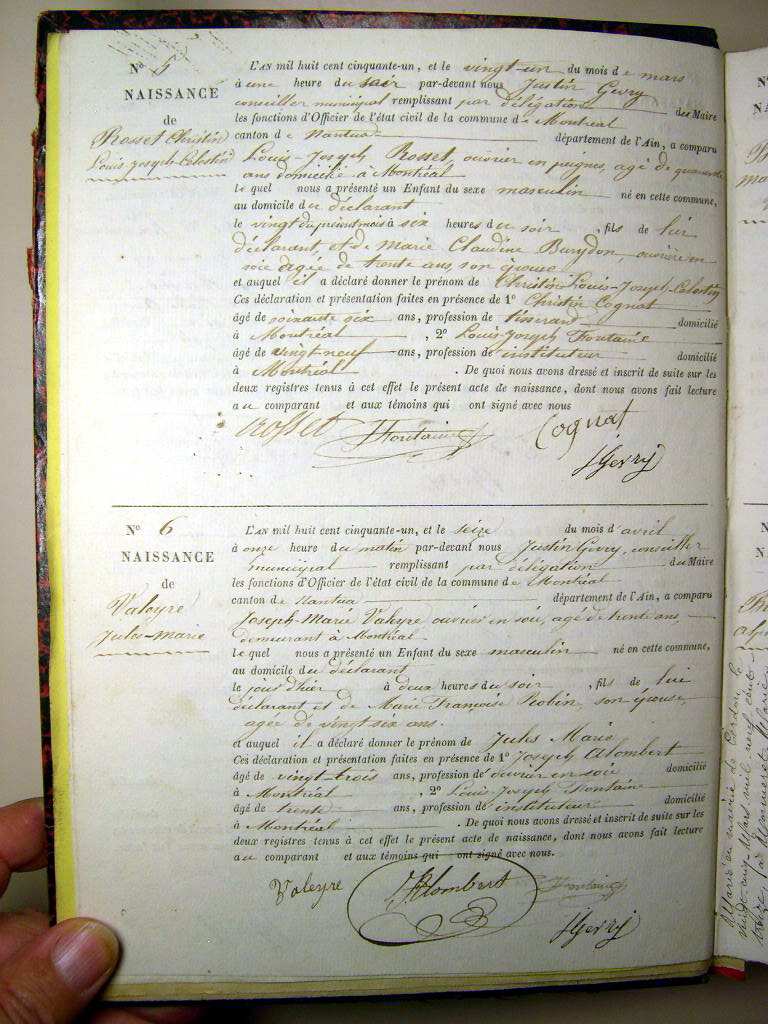 N° 5
NAISSANCE
de
Rosset Christin
Louis Joseph Celestin
L'AN mil huit cent cinquante-un, et le vingt-un du mois de mars
à une heure du soir par-devant nous Justin Gevry
conseiller municipal remplissant par délégation du Maire
les fonctions d'Officier de l'état civil de la commune de Montréal
canton de Nantua département de l'Ain, a comparu
Louis-Joseph Rosset, ouvrier en peignes, agé de quarante
ans domicilié à Montréal
le quel nous a présenté un Enfant du sexe masculin né en cette commune,
au domicile du déclarant
le vingt du présent mois à six heures du soir, fils de lui
déclarant et de Marie Claudine Burydon ouvrière en
soie agée de trente ans, son épouse
et auquel il a déclaré donner le prénom de Christin-Louis-Joseph-Celestin
Ces déclaration et présentation faites en présence de 1° Christin Cognat
âgé de soixante six ans, profession de tisserand domicilié
à Montréal, 2° Louis Joseph Fontaine
âgé de vingt neuf ans, profession de instituteur domicilié
à Montréal. De quoi nous avons dressé et inscrit de suite sur les
deux registres tenus à cet effet le présent acte de naissance, dont nous avons fait lecture
au comparant et aux témoins qui ont signé avec nous
Rosset Fontaine Cognat
JGevry
N° 6
NAISSANCE
de
Valeyre
Jules-Marie
L'AN mil huit cent cinquante-un, et le seize du mois d'avril
à onze heure du matin par-devant nous Justin Gevry, conseiller
municipal remplissant par délégation du Maire
les fonctions d'Officier de l'état civil de la commune de Montréal
canton de Nantua département de l'Ain, a comparu
Joseph-Marie Valeyre ouvrier en soie, agé de trente ans,
demeurant à Montréal
le quel nous a présenté un Enfant du sexe masculin né en cette commune,
au domicile du déclarant
le jour d'hier à deux heures du soir, fils de lui
déclarant et de Marie Françoise Robin, son épouse,
agée de vingt six ans.
et auquel il a déclaré donner le prénom de Jules Marie
Ces déclaration et présentation faites en présence de 1° Joseph Alombert
âgé de vingt-trois ans, profession de ouvrier en soie domicilié
à Montréal, 2° Louis Joseph Fontaine
âgé de trente ans, profession de instituteur domicilié
à Montréal. De quoi nous avons dressé et inscrit de suite sur les
deux registres tenus à cet effet le présent acte de naissance, dont nous avons fait lecture
au comparant et aux témoins qui ont signé avec nous.
Valeyre Alombert Fontaine
JGevry